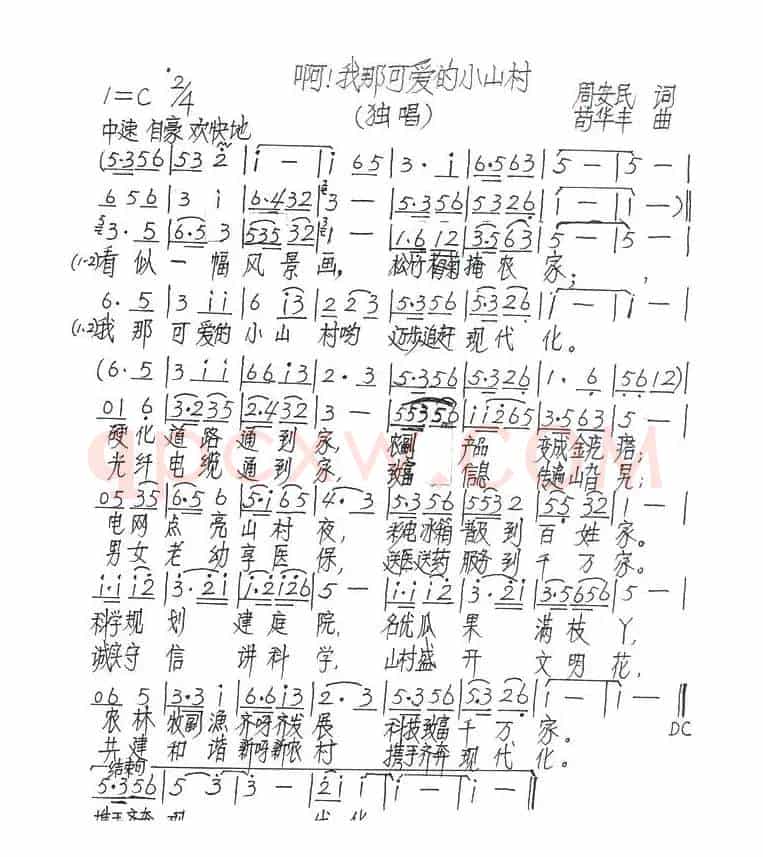 啊!我那可爱的小山村
1=C 2/4
(独唱)
周安民 词
苟华丰 曲
中速 自豪 欢快地
(5·356 | 53 2 | i — | i 65 | 3· i | 6·563 | 5 — | 5 — |
656 | 3 i | 6·432 | 3 — | 5·356 | 5326 | i — | i —)‖
3·5 | 6·5 3 | 535 32 | 1 — | 1·6 12 | 3·563 | 5 — | 5 — |
(1·2)看似一幅风景画, 松竹梅菊掩农家;,
6·5 | 3 ii | 6 i3 | 2 23 | 5·356 | 5·326 | i — | i — |
(1·2)我那可爱的小山村哟 迈步追赶现代化。
(6·5 | 3 ii | 66i3 | 2·3 | 5·356 | 5·326 | 1·6 | 5612) |
01 6 | 3·235 | 2·432 | 3 — | 55356 | ii265 | 3·563 | 5 — |
硬化道路通到家, 农副产品变成金疙瘩;
光纤电缆通到家, 致富信息传遍山旮旯;
qpcxw.com
05 35 | 6·5 6 | 5·i65 | 4·3 | 5·356 | 5532 | 55 32 | 1 — |
电网点亮山村夜, 彩电冰箱普及到百姓家。
男女老幼享医保, 送医送药服务到千万家。
i·i i2 | 3·2i | i·2i26 | 5 — | i·i i2 | 3·2i | 3·5656 | 5 — |
科学规划建庭院, 名优瓜果满枝丫,
诚实守信讲科学, 山村盛开文明花,
06 5 | 3·3 i | 6·6 i3 | 2·3 | 5·356 | 5·3 26 | i — | i — ‖
农林牧副渔齐呀齐发展 科技致富千万家。
共建和谐新呀新农村 携手齐奔现代化。
DC
结束句
5·356 | 5 3 | 3 — | 2i i | i — | i — ‖
携手齐奔 现 代 化